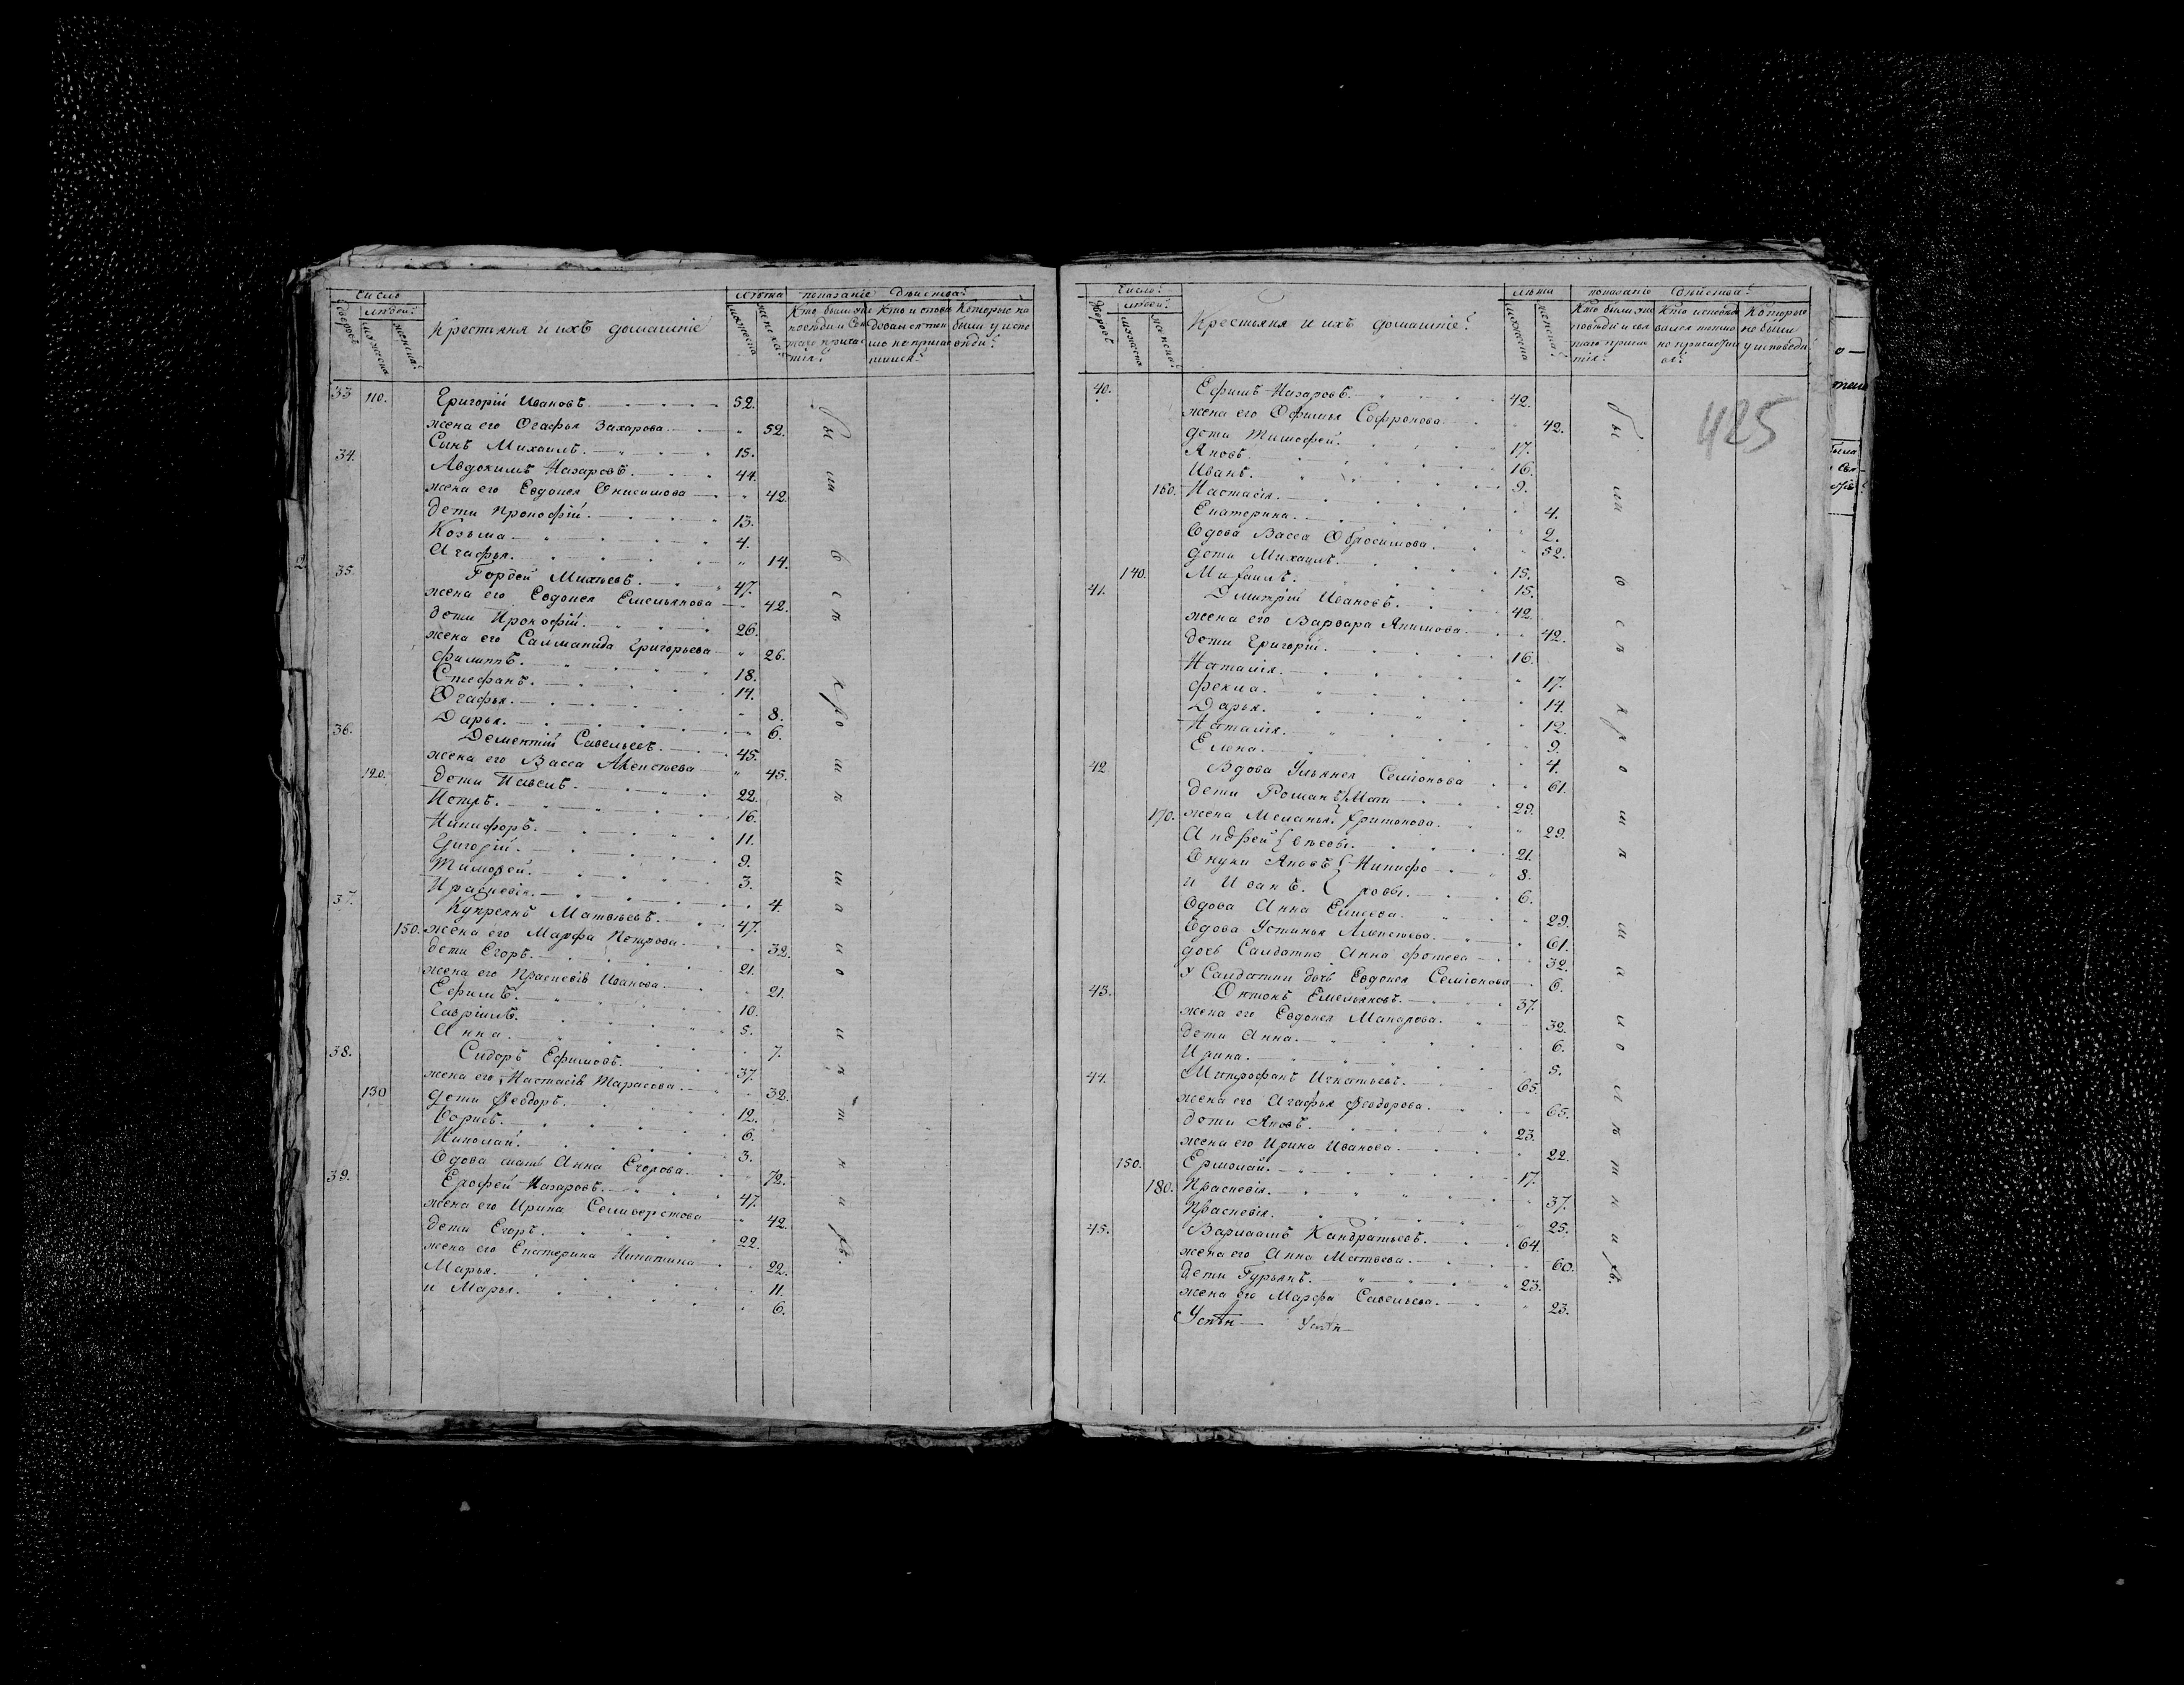 число
лѣта показаніе дѣйства
дворовъ
людей
мужеска
женска
Крестьяня и ихъ домашніе
мужеска
женска
Кто были у исповѣди и Святаго причастія
Кто исповѣдовался токмо но не причастился
Которые не были у исповѣди
33 110. Григорій Ивановъ 52.
жена его Огафья Захарова 52.
Сынъ Михаилъ 15.
34. Авдокимъ Назаровъ 44.
жена его Евдокея Онисимова 42.
дети Прокофій 13.
Козьма 4.
Агафья 14.
35. Гордей Михѣевъ 47.
жена его Евдокея Емельянова 42.
дети Прокофій 26.
жена его Салманида Григорьева 26.
Филиппъ 18.
Стефанъ 14.
Огафья 8.
Дарья 6.
36. Дементій Савельевъ 45.
жена его Васса Алексѣева 45.
120. дети Павелъ 22.
Петръ 16.
Никифоръ 11.
Григорій 9.
Тимофей 3.
Праскевія 4.
37. Купреянъ Матвѣевъ 47.
150. жена его Марфа Петрова 32.
дети Егоръ 21.
жена его Праскевія Иванова 21.
Ефимъ 10.
Гавріилъ 5.
Анна 7.
38. Сидоръ Ефимовъ 37.
жена его Настасія Тарасова 32.
130 дети Ѳеодоръ 12.
Борисъ 6.
Николай 3.
Вдова мать Анна Егорова 72.
39. Ерофей Назаровъ 47.
жена его Ирина Селиверстова 42.
дети Егоръ 22.
жена его Екатерина Никитина 22.
Марья 11.
и Марья 6.
были
всѣ
крошѣ
малолѣтн
число
лѣта показаніе дѣйства
дворовъ
людей
мужеска
женска
Крестьяня и ихъ домашніе
мужеска
женска
Кто были у исповѣди и святаго причастія
Кто исповѣдовался токмо не причастился
Которые не были у исповѣди
425
40. Ефимъ Назаровъ 42.
жена его Офимья Софронова 42.
дети Тимофей 17.
Яковъ 16.
Иванъ 9.
160. Настасія 4.
Екатерина 2.
Вдова Васса Обросимова 52.
дети Михаилъ 15.
140. Михаилъ 15.
41. Дмитрій Ивановъ 42.
жена его Варвара Якимова 42.
дети Григорій 16.
Наталія 17.
Фекла 14.
Дарья 12.
Наталія 9.
Елена 4.
42 Вдова Ульянея Семіонова 61.
дети Романъ 29.
170. жена Меланья Харитонова 29.
Андрей 21.
Внуки Яковъ Никифо 8.
и Иванъ ровы 6.
Вдова Анна 29.
Вдова Устинья Алексѣева 61.
дочь Салдатка Анна Фотеева 32.
У Салдатки дочь Евдокея Семіонова 6.
43. Онтонъ Емельяновъ 37.
жена его Евдокея Макарова 32.
дети Анна 6.
Ирина 5.
44. Митрофанъ Игнатьевъ 65.
жена его Агафья Ѳеодорова 65.
дети Яковъ 23.
жена его Ирина Иванова 22.
150. Ермолай 17.
180. Праскевія 37.
Праскевія 25.
45. Варлаамъ Кандратьевъ 64.
жена его Анна Матвеева 60.
дети Гурьянъ 23.
жена его Марфа Савельева 23.
были
всѣ
крошѣ
малолѣтн